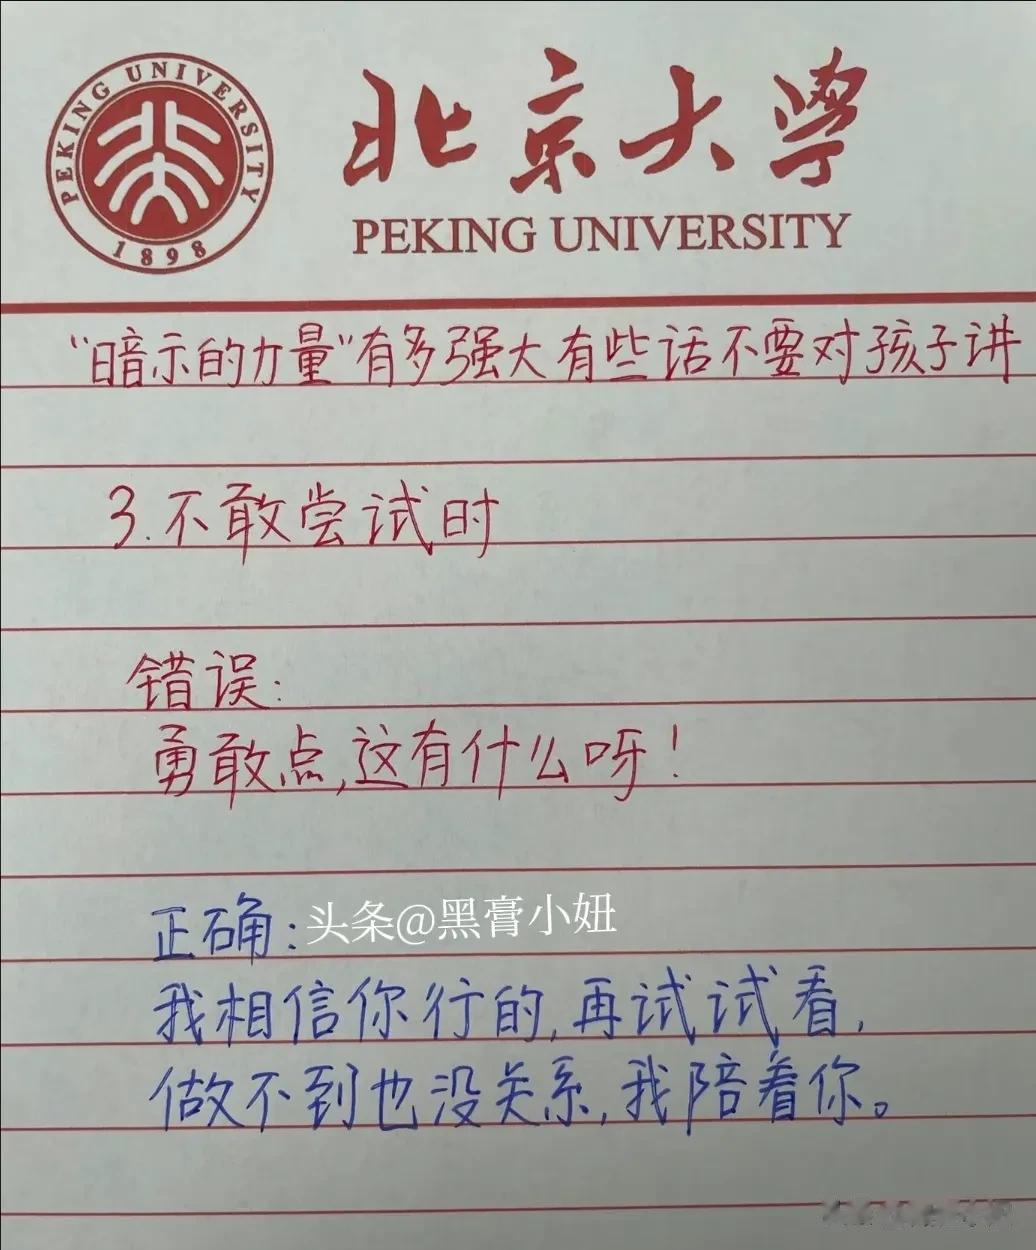 PEKING UNIVERSITY
1898
北京大学
PEKING UNIVERSITY
“暗示的力量”有多强大有些话不要对孩子讲
3.不敢尝试时
错误:
勇敢点,这有什么呀!
正确:
头条@黑膏小妞
我相信你行的,再试试看,
做不到也没关系,我陪着你。